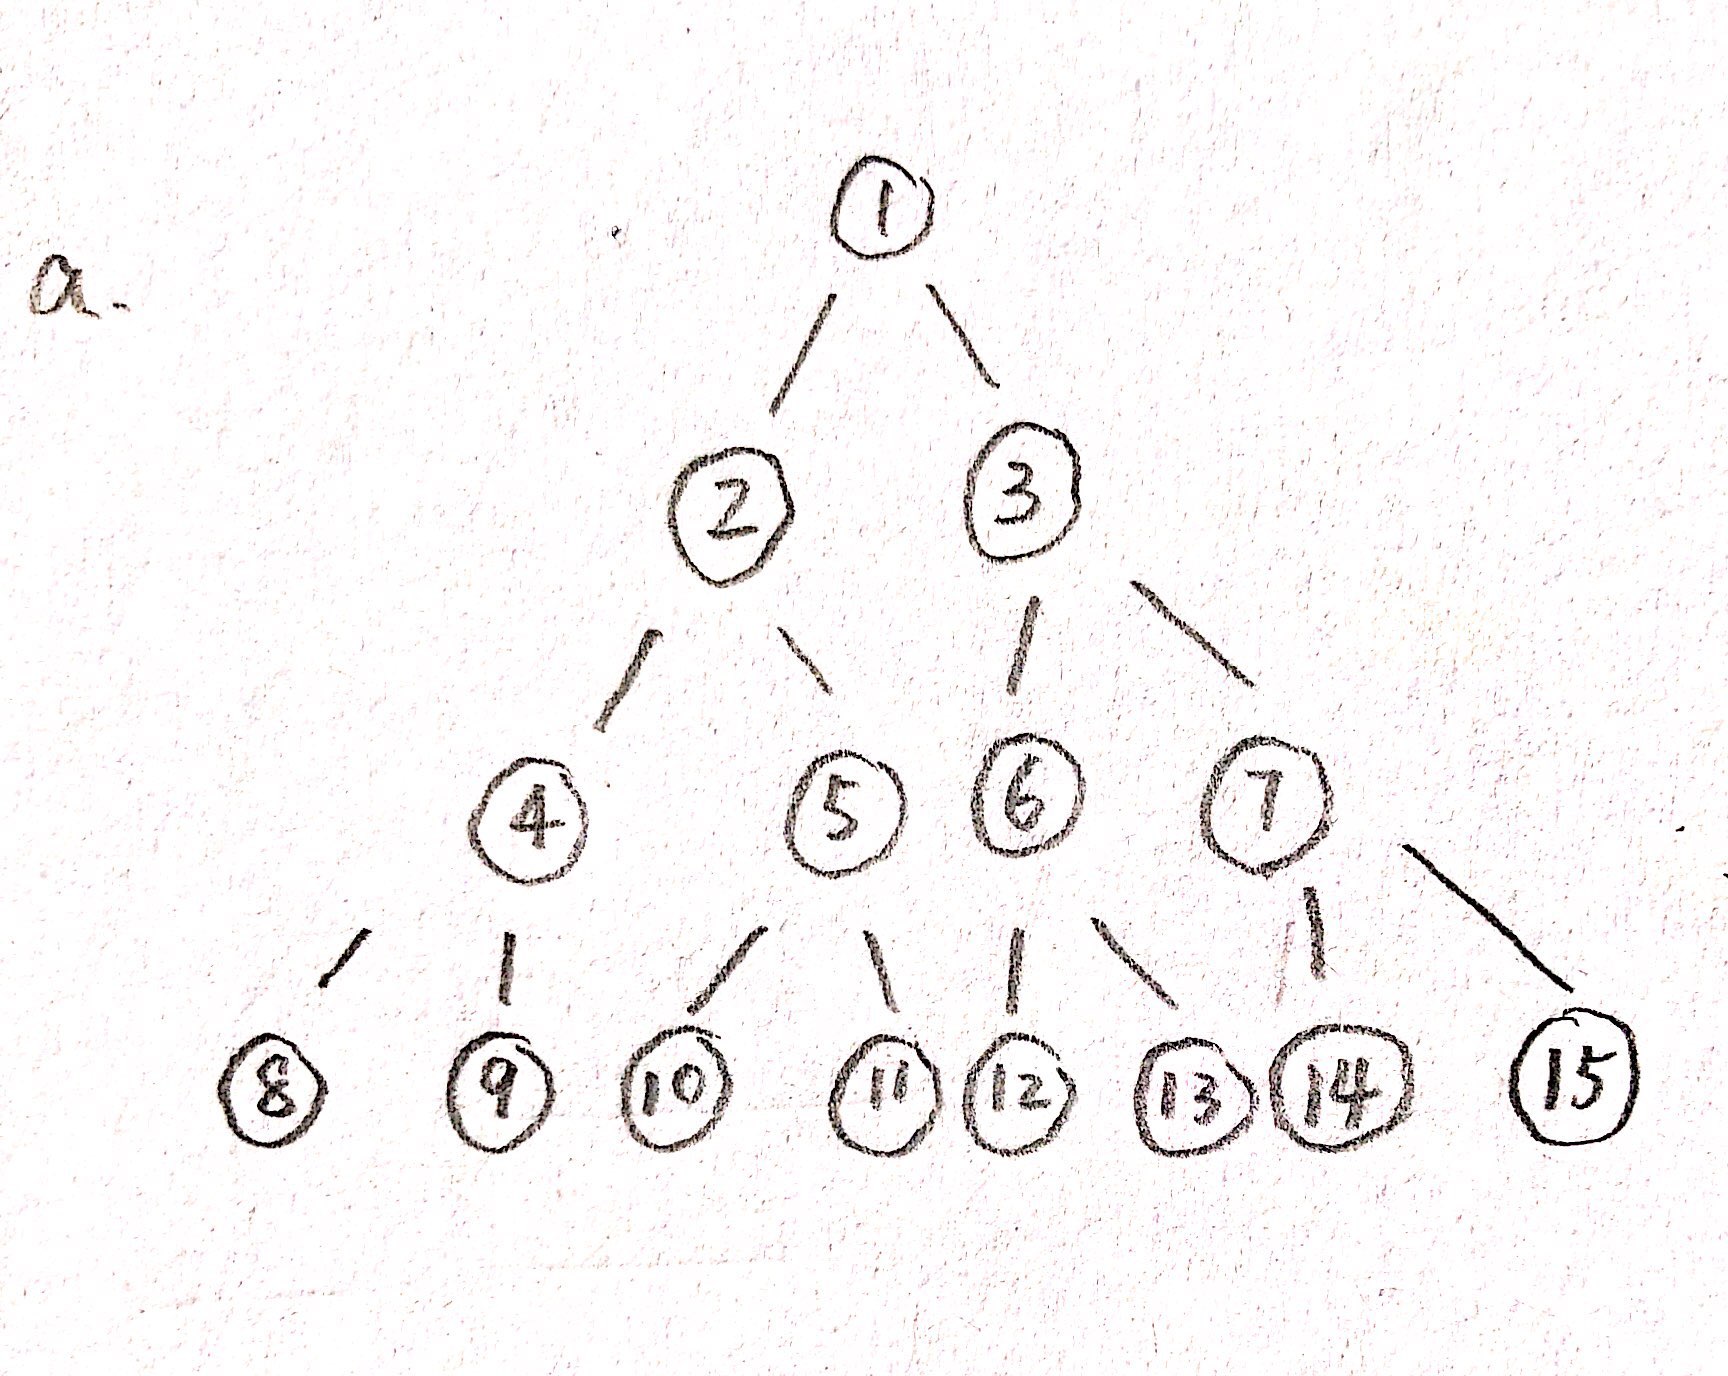 1
a.
2 3
4 5 6 7
8 9 10 11 12 13 14 15